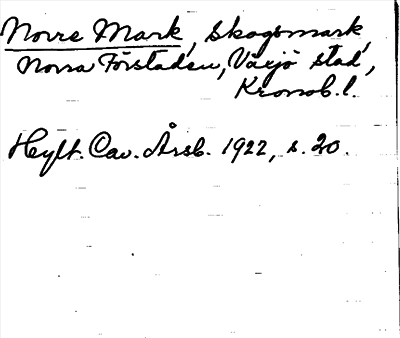 Norre Mark, Skogsmark,
Norra Förstaden, Växjö stad,
Kronob. l.
Hylt. Cav. Årsb. 1922, s. 20.